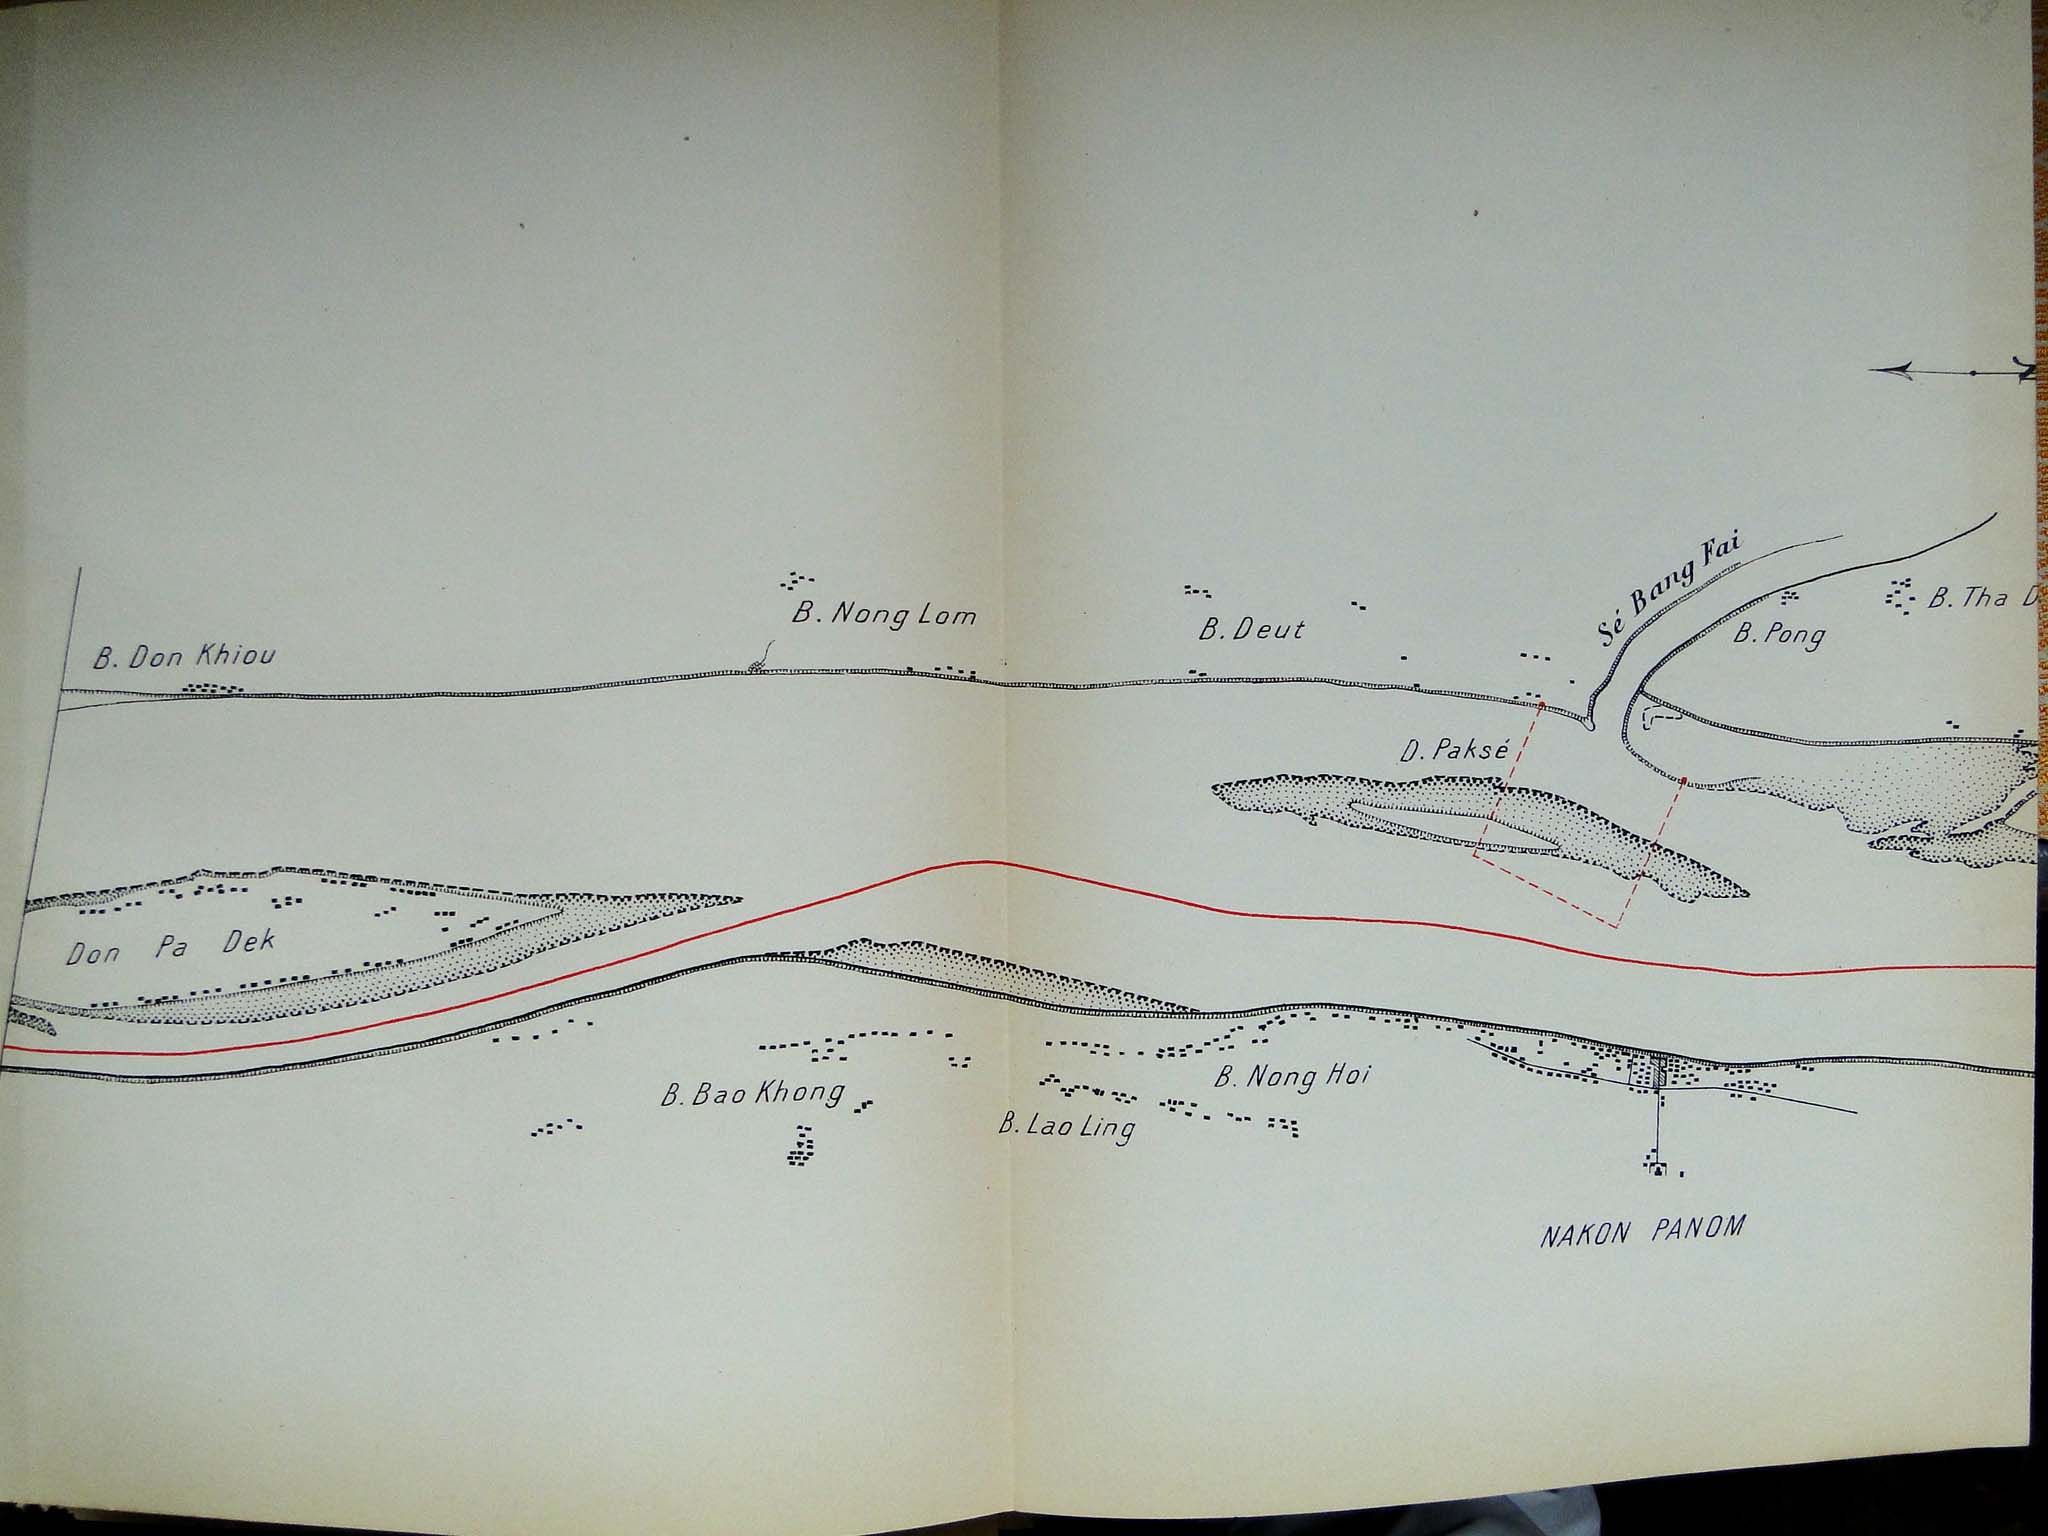 Sé Bang Fai
B. Nong Lom
B. Deut
B. Pong
B. Tha
B. Don Khiou
D. Paksé
Don Pa Dek
B. Bao Khong
B. Lao Ling
B. Nong Hoi
NAKON PANOM